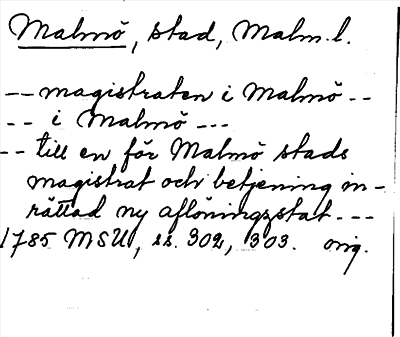 Malmö, stad, Malm. l.
-- magistraten i Malmö --
-- i Malmö ---
-- till en för Malmö stads
magistrat och betjening in-
rättad ny aflöningsstat ---
1785 MSU, ss. 302, 303. orig.